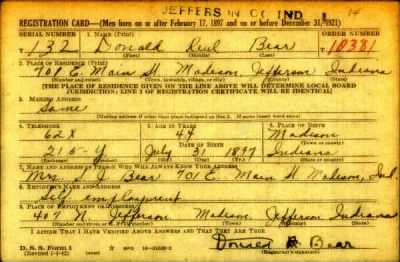 JEFFERSON CO. IND 14
REGISTRATION CARD—(Men born on or after February 17, 1897 and on or before December 31, 1921)
SERIAL NUMBER 1. NAME (Print) ORDER NUMBER
T 132 Donald Bear 10381
(First) (Middle) (Last)
2. PLACE OF RESIDENCE (Print)
701 E. Main St. Madison, Jefferson Indiana
(Number and street) (Town, township, village, or city) (County) (State)
[THE PLACE OF RESIDENCE GIVEN ON THE LINE ABOVE WILL DETERMINE LOCAL BOARD
JURISDICTION; LINE 2 OF REGISTRATION CERTIFICATE WILL BE IDENTICAL]
3. MAILING ADDRESS
Same
[Mailing address if other than place indicated on line 2. If same insert word same]
4. TELEPHONE 5. AGE IN YEARS 6. PLACE OF BIRTH
62X 44 Madison
DATE OF BIRTH (Town or county)
215-Y July 31 1897 Indiana
(Exchange) (Number) (Mo.) (Day) (Yr.) (State or country)
7. NAME AND ADDRESS OF PERSON WHO WILL ALWAYS KNOW YOUR ADDRESS
Mrs. Bear 701 E. Main St Madison, Ind.
8. EMPLOYER'S NAME AND ADDRESS
Self employment
9. PLACE OF EMPLOYMENT OR BUSINESS
407 N. Jefferson Madison, Jefferson Indiana
(Number and street or R. F. D. number) (Town) (County) (State)
I AFFIRM THAT I HAVE VERIFIED ABOVE ANSWERS AND THAT THEY ARE TRUE.
D. S. S. Form 1 GPO Donald R. Bear
(Revised 1-1-42) (Registrant's signature)